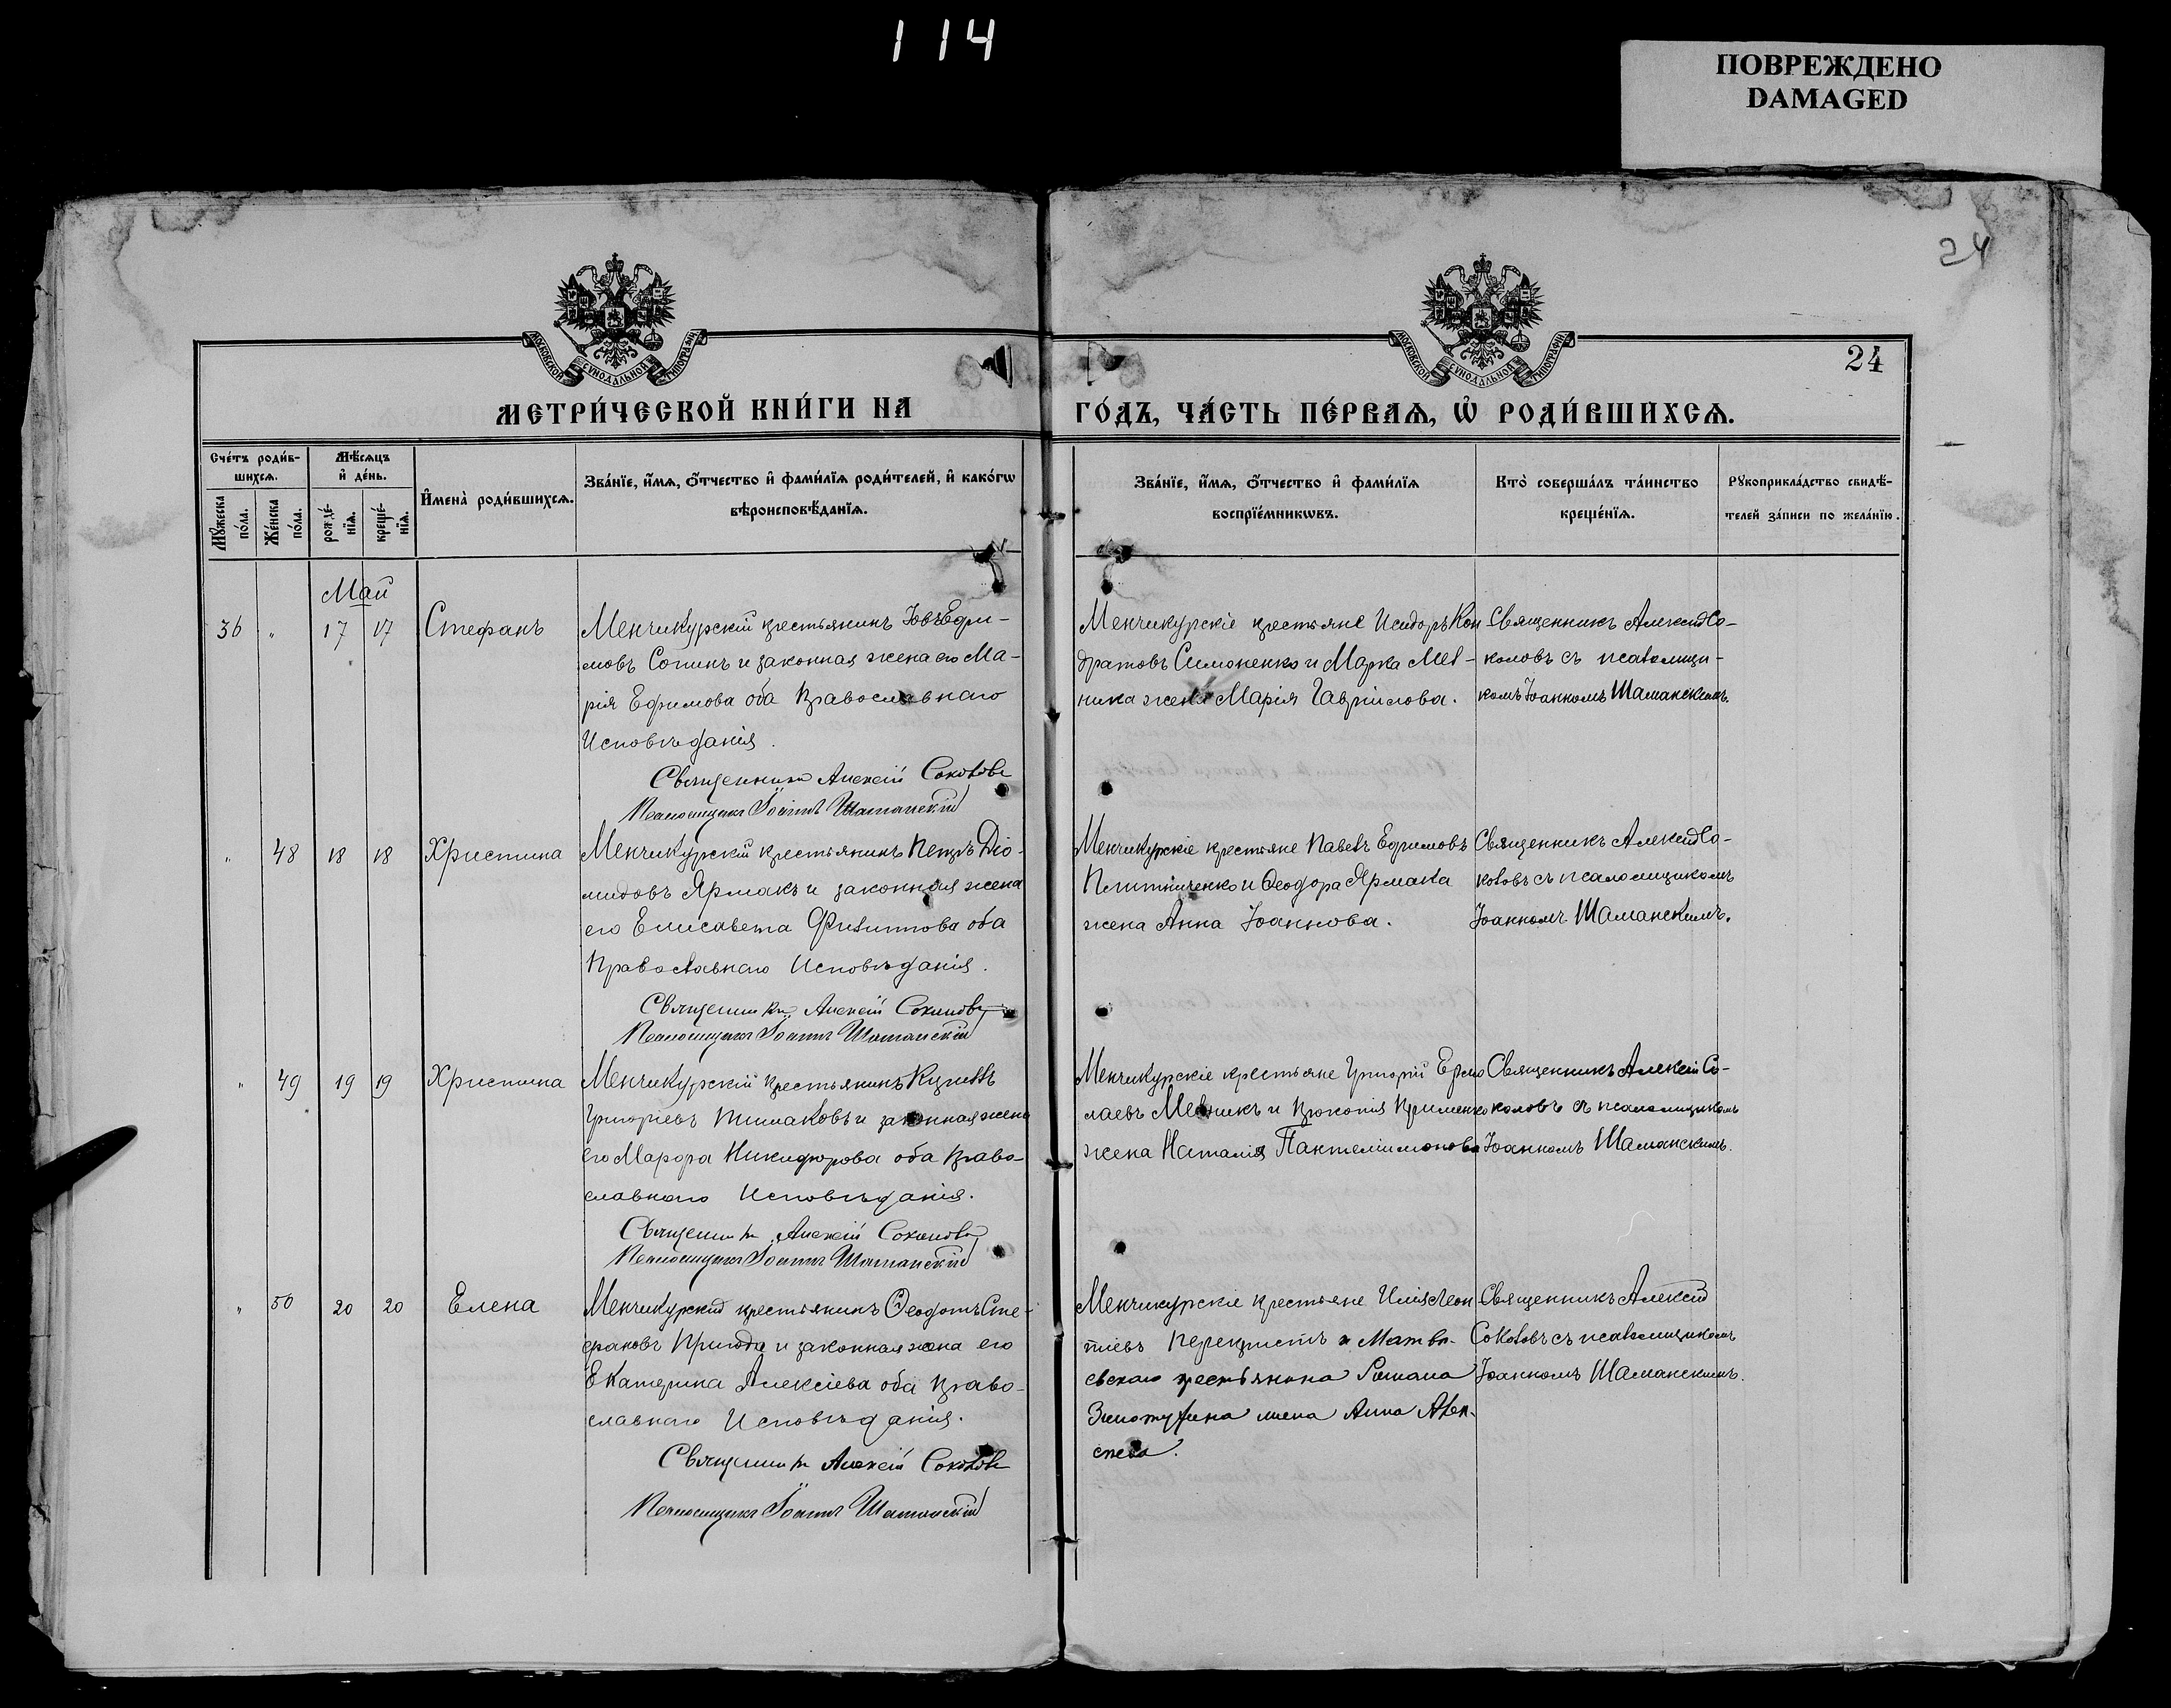 114
ПОВРЕЖДЕНО
DAMAGED
24
МОСКОВСКОЙ СѴНОДАЛЬНОЙ ТИПОГРАФІИ
МОСКОВСКОЙ СѴНОДАЛЬНОЙ ТИПОГРАФІИ
24
МЕТРИ́ЧЕСКОЙ КНИ́ГИ НА
ГО́ДЪ, ЧА́СТЬ ПЕ́РВАѦ, Ѡ҆ РОДИ́ВШИХСѦ.
Сче́тъ роди́в-
шихсѧ.
Мꙋ́жеска
по́ла.
Же́нска
по́ла.
Мѣ́сѧцъ
и҆ де́нь.
рожде́-
нїѧ.
креще́-
нїѧ.
И҆мена̀ роди́вшихсѧ.
Зва́нїе, и҆́мѧ, о҆́тчество и҆ фами́лїѧ роди́телей, и҆ како́гѡ
вѣроисповѣ́данїѧ.
Зва́нїе, и҆́мѧ, о҆́тчество и҆ фами́лїѧ
воспрїе́мникѡвъ.
Кто̀ соверша́лъ та́инство
креще́нїѧ.
Рꙋкоприкла́дство свидѣ́-
телей за́писи по жела́нїю.
Май
36 " 17 17 Стефанъ
Менчикурскій крестьянинъ Іовъ Ефи-
мовъ Сопинъ и законная жена его Ма-
рія Ефимова оба Православнаго
Исповѣданія.
Священникъ Алексій Соколовъ
Псаломщикъ Іоаннъ Шаманскій
Менчикурскіе крестьяне Исидоръ Кон
дратовъ Симоненко и Марка Мел-
ника жена Марія Гавріилова.
Священникъ Алексій Со-
коловъ съ псаломщи-
комъ Іоанномъ Шаманскимъ.
" 48 18 18 Христина
Менчикурскій крестьянинъ Петръ Діо-
мидовъ Ярмакъ и законная жена
его Елисавета Филиппова оба
Православнаго Исповѣданія.
Священникъ Алексій Соколовъ
Псаломщикъ Іоаннъ Шаманскій
Менчикурскіе крестьяне Павелъ Ефимовъ
и Ѳеодора Ярмака
жена Анна Іоаннова.
Священникъ Алексій Со-
коловъ съ псаломщикомъ
Іоанномъ Шаманскимъ.
" 49 19 19 Христина
Менчикурскій крестьянинъ Кириллъ
Григоріевъ и законная жена
его Марфа Никифорова оба Право-
славнаго Исповѣданія.
Священникъ Алексій Соколовъ
Псаломщикъ Іоаннъ Шаманскій
Менчикурскіе крестьяне Григорій Ермо
лаевъ Мельникъ и Прокопія
жена Наталія Пантелімонова
Священникъ Алексій Со-
коловъ съ псаломщикомъ
Іоанномъ Шаманскимъ.
" 50 20 20 Елена
Менчикурскій крестьянинъ Ѳеодотъ Сте-
фановъ Пригода и законная жена его
Екатерина Алексіева оба Право-
славнаго Исповѣданія.
Священникъ Алексій Соколовъ
Псаломщикъ Іоаннъ Шаманскій
Менчикурскіе крестьяне Илія Леон
тіевъ Перехристъ и Матвѣ-
евскаго крестьянина Романа
жена Анна Алек-
сѣева.
Священникъ Алексій
Соколовъ съ псаломщикомъ
Іоанномъ Шаманскимъ.